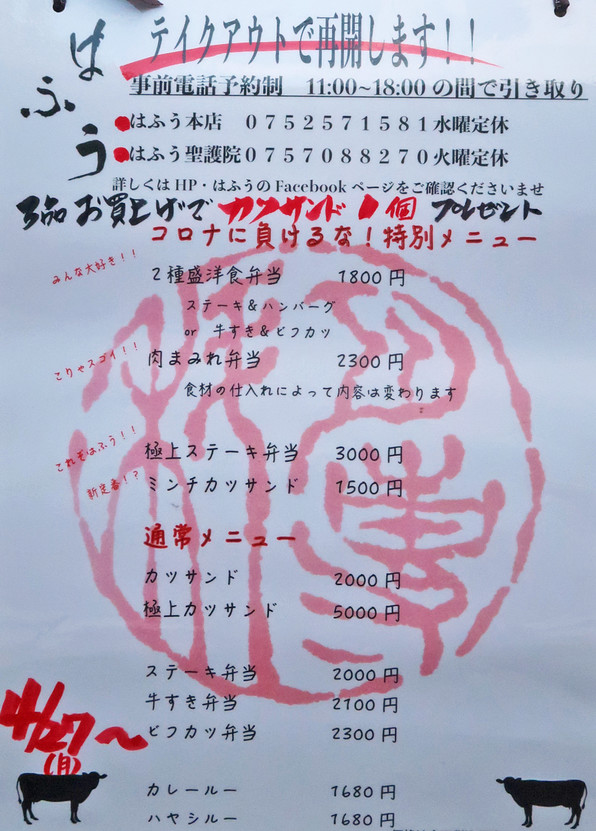 はふう
テイクアウトで再開します!!
事前電話予約制 11:00~18:00 の間で引き取り
●はふう本店 0752571581水曜定休
●はふう聖護院0757088270火曜定休
詳しくは HP・はふうのFacebookページをご確認くださいませ
3品お買上げで カツサンド 1個 プレゼント
コロナに負けるな!特別メニュー
みんな大好き!!
2種盛洋食弁当 1800円
ステーキ&ハンバーグ
or 牛すき&ビフカツ
こりゃスゴイ!!
肉まみれ弁当 2300円
食材の仕入れによって内容は変わります
これぞはふう!!
極上ステーキ弁当 3000円
新定番!?
ミンチカツサンド 1500円
通常メニュー
カツサンド 2000円
極上カツサンド 5000円
ステーキ弁当 2000円
牛すき弁当 2100円
ビフカツ弁当 2300円
4/27~
(月)
カレールー 1680円
ハヤシルー 1680円